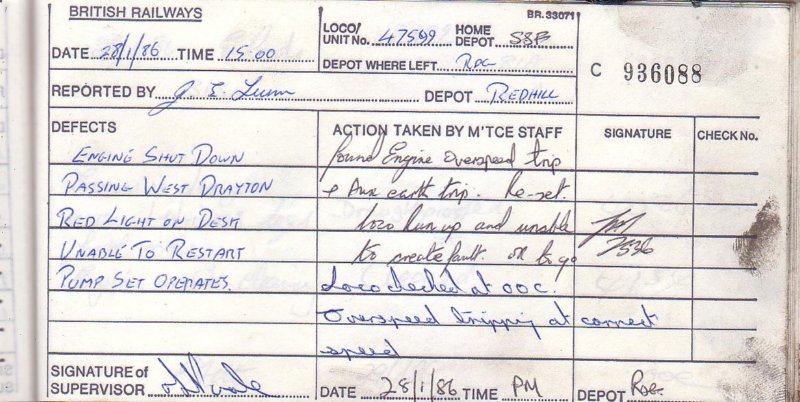 BRITISH RAILWAYS
BR. 33071
DATE 28/1/86 TIME 15·00
LOCO/ UNIT No. 47599 HOME DEPOT SSB
DEPOT WHERE LEFT RDG
C 936088
REPORTED BY J. E. Lunn DEPOT REDHILL
DEFECTS ACTION TAKEN BY M'TCE STAFF SIGNATURE CHECK No.
ENGINE SHUT DOWN found Engine overspeed trip
PASSING WEST DRAYTON & Aux earth trip. Re-set.
RED LIGHT ON DESK Loco run up and unable
UNABLE TO RESTART to create fault. OK to go
PUMP SET OPERATES. Loco checked at OOC.
Overspeed tripping at correct
speed
SIGNATURE OF SUPERVISOR
DATE 28/1/86 TIME PM DEPOT RDG.